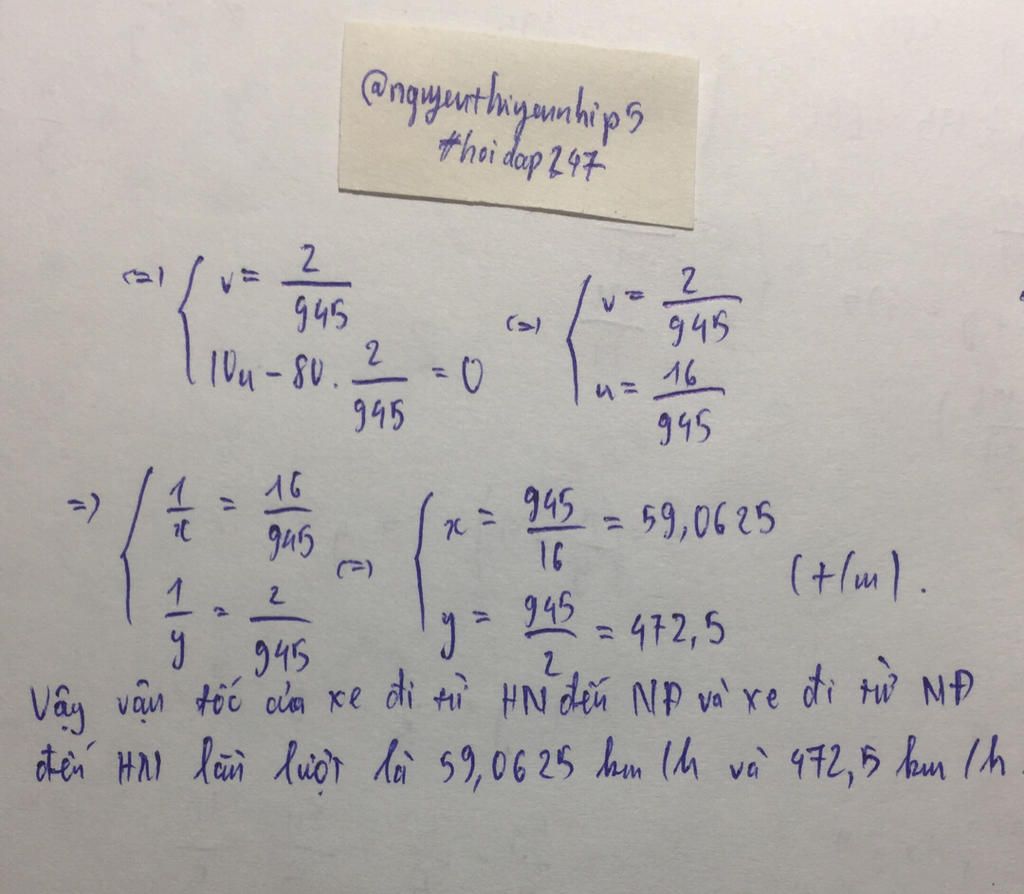 @nguyenthiyennhip5
#hoidap247
<=> { v = 2/945
10u - 80 . 2/945 = 0
<=> { v = 2/945
u = 16/945
=> { 1/x = 16/945
1/y = 2/945
<=> { x = 945/16 = 59,0625
y = 945/2 = 472,5
(t/m).
Vậy vận tốc của xe đi từ HN đến NĐ và xe đi từ NĐ
đến HN lần lượt là 59,0625 km/h và 472,5 km/h.